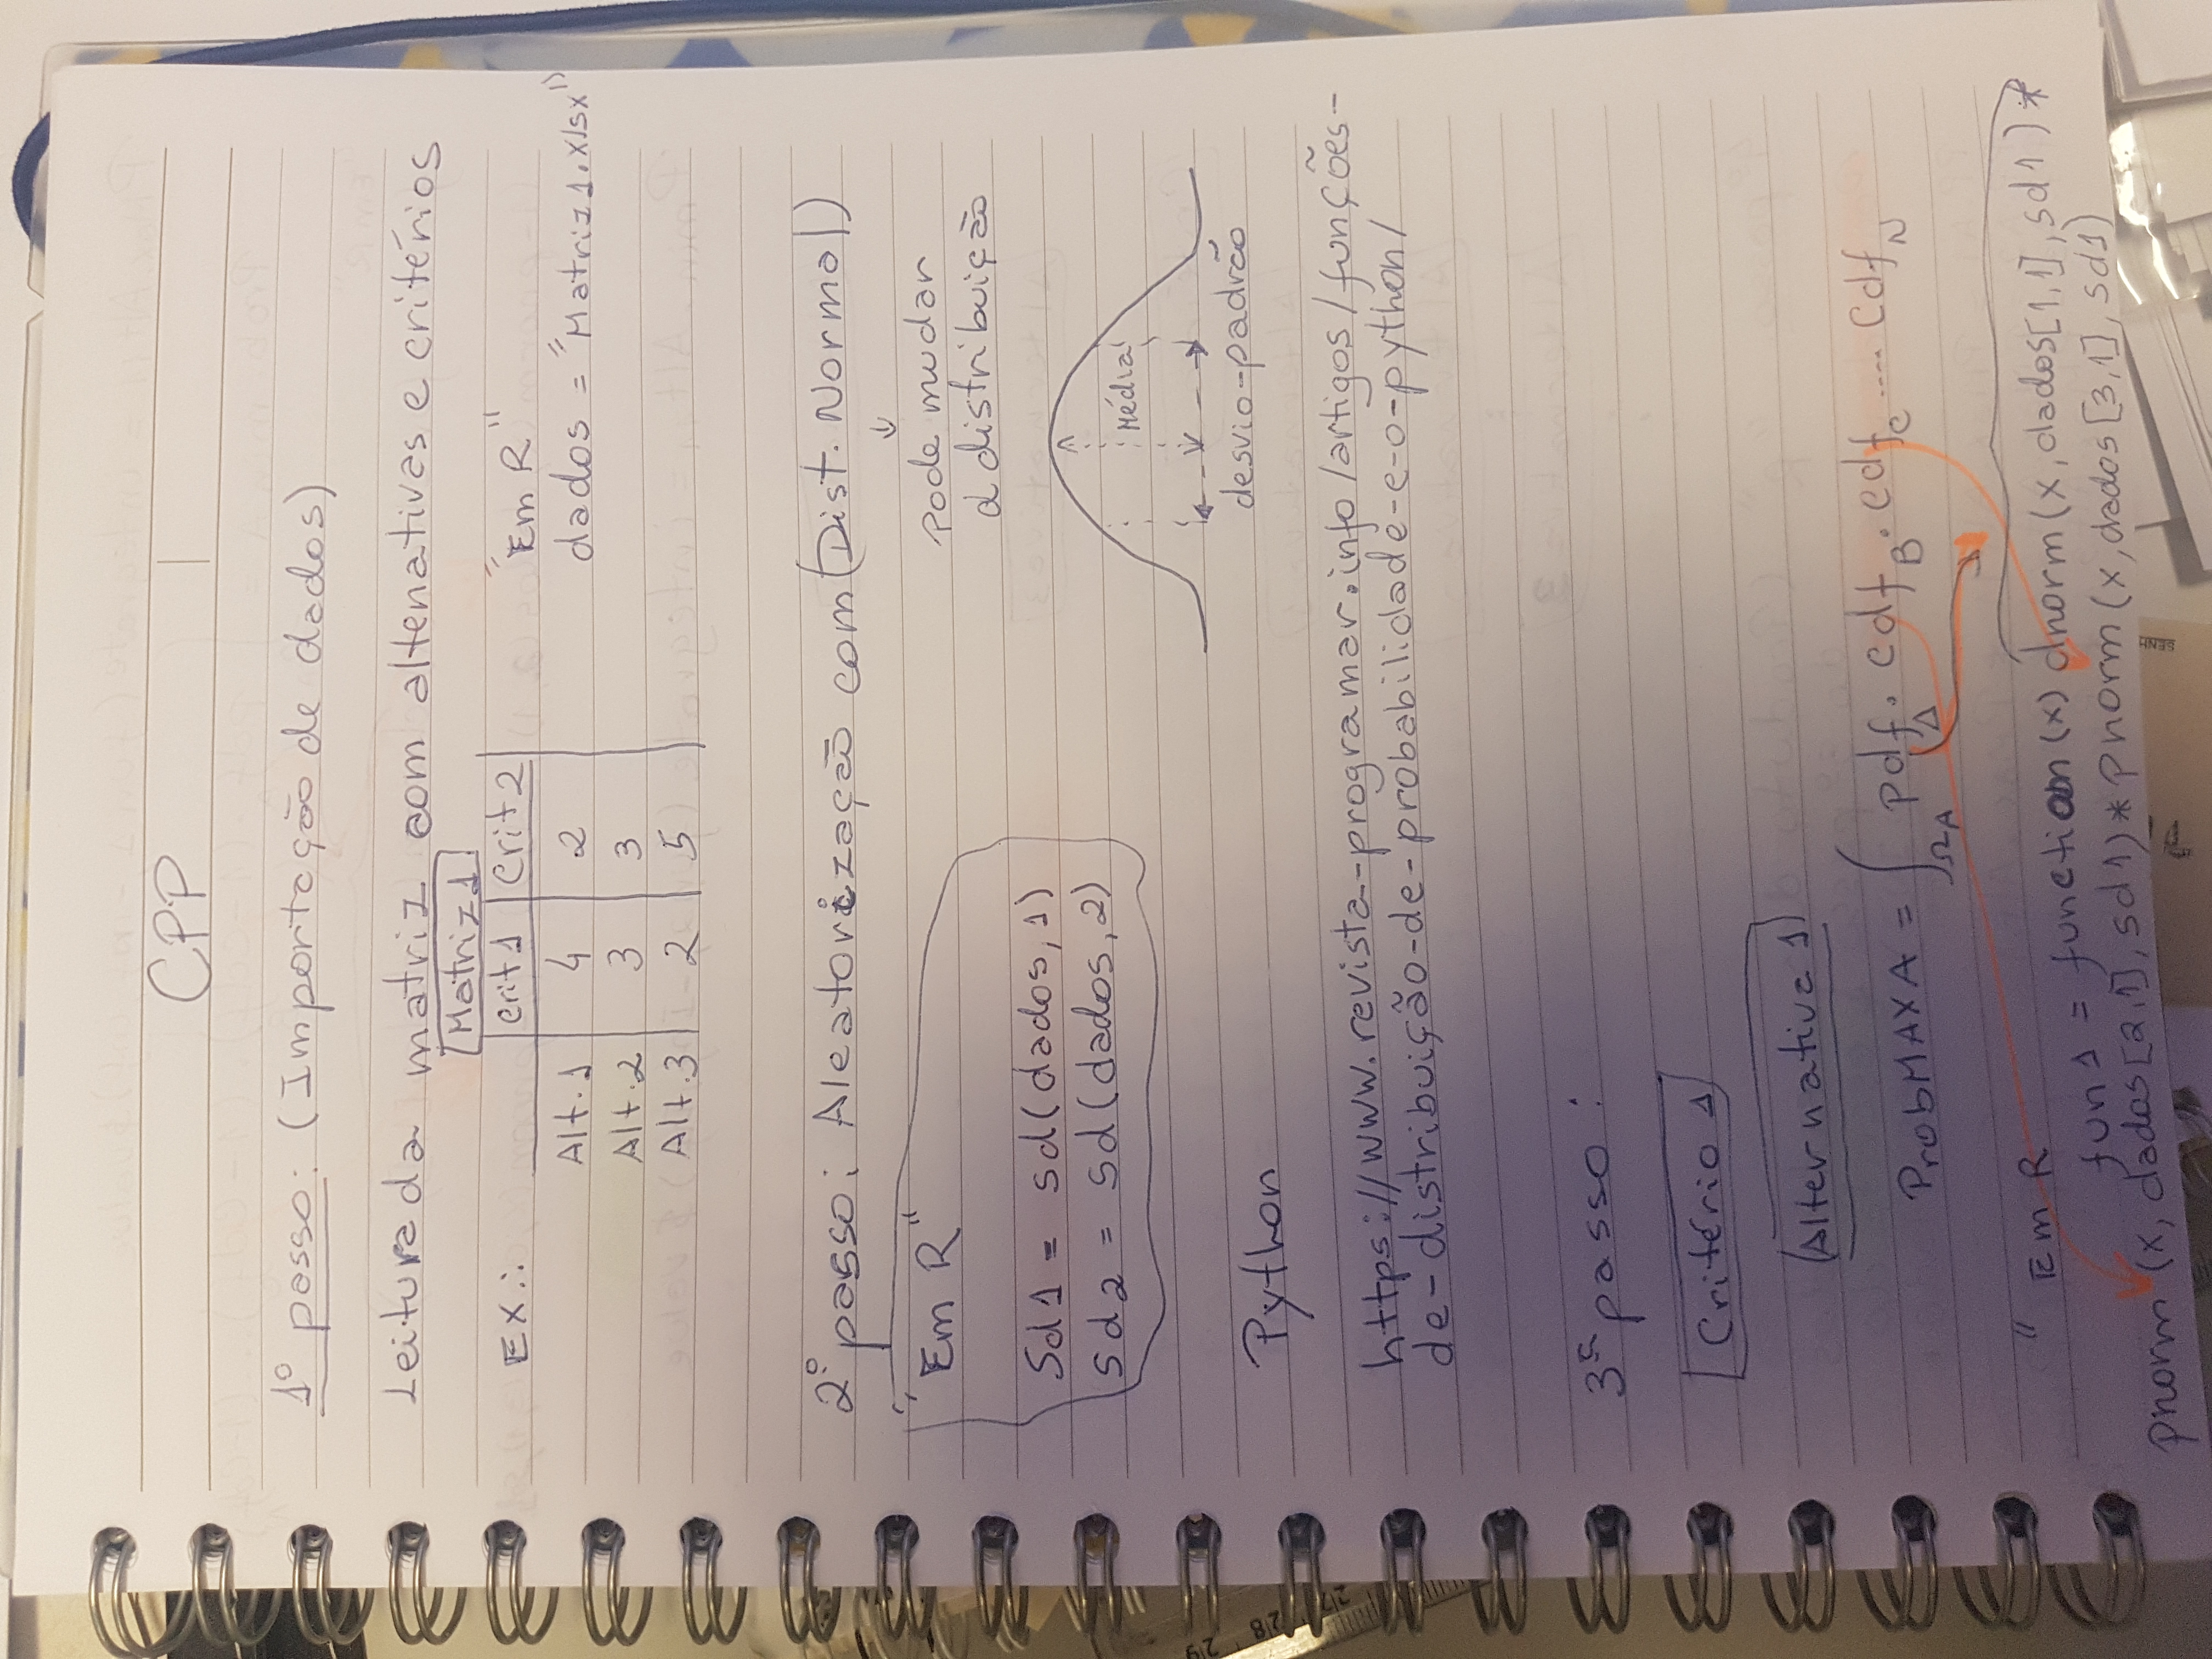 CPP
1º passo: (Importação de dados)
Leitura da matriz com altenativas e critérios
Matriz 1
EX.: crit 1 crit 2 "Em R"
Alt. 1 4 2 dados = "Matriz 1.xlsx"
Alt. 2 3 3
Alt. 3 2 5
2º passo: Aleatorização com (Dist. Normal)
↓
"Em R" pode mudar
a distribuição
Sd1 = sd(dados, 1)
sd2 = sd(dados, 2)
Média
desvio-padrão
Python
https://www.revista-programar.info/artigos/funções-
de-distribuição-de-probabilidade-e-o-python/
3º passo:
Critério 1
Alternativa 1
ProbMAXA = ∫ΩA pdfA . cdfB . cdfC .... CdfN
" Em R
fun1 = function(x) dnorm(x, dados[1,1], sd1) *
pnorm (x, dados[2,1], sd1) * pnorm (x, dados[3,1], sd1)